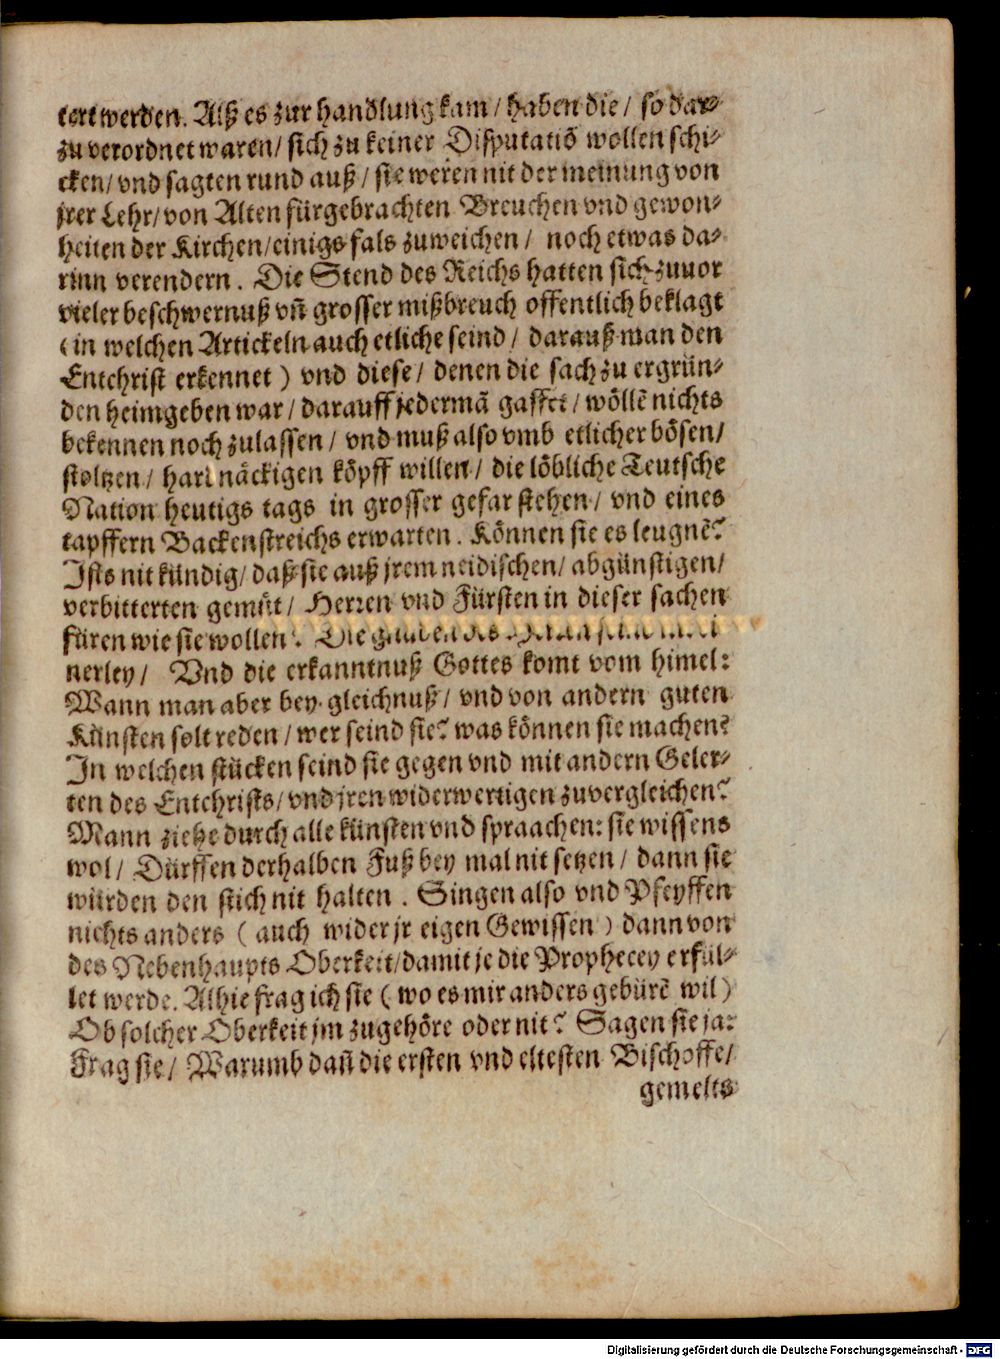 tert werden. Alß es zur handlung kam / haben die / so dar-
zu verordnet waren / sich zu keiner Disputatiō wollen schi-
cken / vnd sagten rund auß / sie weren nit der meinung von
jrer Lehr / von Alten fürgebrachten Breuchen vnd gewon-
heiten der Kirchen / einigs fals zuweichen / noch etwas da-
rinn verendern. Die Stend des Reichs hatten sich zuuor
vieler beschwernuß vñ grosser mißbreuch offentlich beklagt
(in welchen Artickeln auch etliche seind / darauß man den
Entchrist erkennet) vnd diese / denen die sach zu ergrün-
den heimgeben war / darauff jedermā gaffet / wöllē nichts
bekennen noch zulassen / vnd muß also vmb etlicher bösen /
stoltzen / hartnäckigen köpff willen / die löbliche Teutsche
Nation heutigs tags in grosser gefar stehen / vnd eines
tapffern Backenstreichs erwarten. Können sie es leugnē?
Ists nit kündig / daß sie auß jrem neidischen / abgünstigen /
verbitterten gemüt / Herren vnd Fürsten in dieser sachen
füren wie sie wollen? Die
nerley / Vnd die erkanntnuß Gottes komt vom himel:
Wann man aber bey gleichnuß / vnd von andern guten
Künsten solt reden / wer seind sie? was können sie machen?
In welchen stücken seind sie gegen vnd mit andern Geler-
ten des Entchrists / vnd jren widerwertigen zuvergleichen?
Mann ziehe durch alle künsten vnd spraachen: sie wissens
wol / Dürffen derhalben Fuß bey mal nit setzen / dann sie
würden den stich nit halten. Singen also vnd Pfeyffen
nichts anders (auch wider jr eigen Gewissen) dann von
des Nebenhaupts Oberkeit / damit je die Prophecey erfül-
let werde. Alhie frag ich sie (wo es mir anders gebürē wil)
Ob solcher Oberkeit jm zugehöre oder nit? Sagen sie ja:
Frag sie / Warumb dañ die ersten vnd eltesten Bischoffe /
gemelts
Digitalisierung gefördert durch die Deutsche Forschungsgemeinschaft - DFG